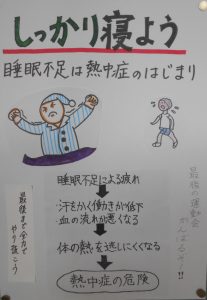 しっかり寝よう
睡眠不足は熱中症のはじまり
睡眠不足による疲れ
・汗をかく働きが低下
・血の流れが悪くなる
体の熱を逃しにくくなる
熱中症の危険
最後まで全力で
やり抜こう
最後の運動会
がんばろう!!